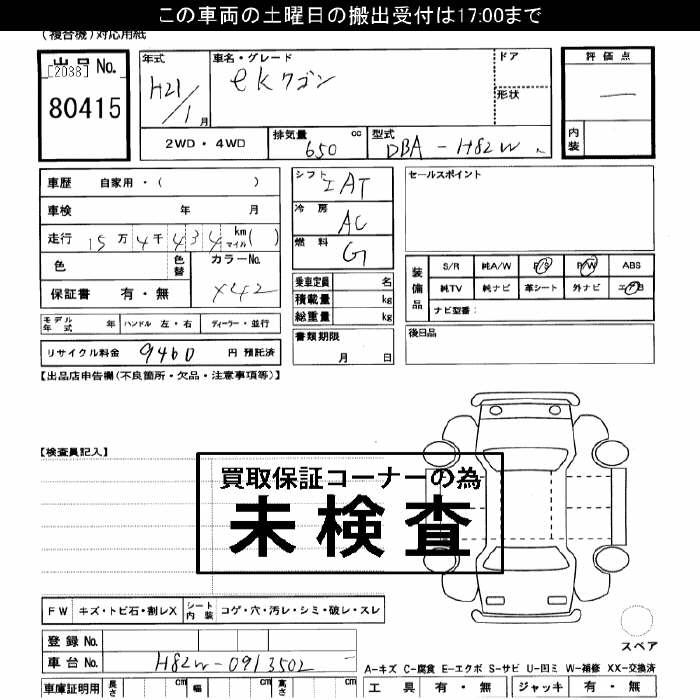 この車両の土曜日の搬出受付は17:00まで
(複合機)対応用紙
出品 No.
[2038]
80415
年式
H21/1 月
車名・グレード
ekワゴン
ドア
形状
評価点
—
内装
2WD・4WD
排気量 650 cc
型式 DBA-H82W
車歴 自家用・( )
車検 年 月
走行 15万4千434 km マイル( )
色
色替
カラーNo.
X42
保証書 有・無
シフト IAT
冷房 AC
燃料 G
乗車定員 名
積載量 kg
総重量 kg
セールスポイント
装備品
S/R 純A/W P/S P/W ABS
純TV 純ナビ 革シート 外ナビ エアB
ナビ型番:
モデル年式 年 ハンドル 左・右 ディーラー・並行
書類期限
月 日
後日品
リサイクル料金 9460 円 預託済
【出品店申告欄(不良箇所・欠品・注意事項等)】
【検査員記入】
買取保証コーナーの為
未検査
FW キズ・トビ石・割レX シート内装 コゲ・穴・汚レ・シミ・破レ・スレ
登録 No.
車台 No. H82W-0913502
スペア
A-キズ C-腐食 E-エクボ S-サビ U-凹ミ W-補修 XX-交換済
車庫証明用 長さ cm 幅 cm 高さ cm
工具 有・無 ジャッキ 有・無